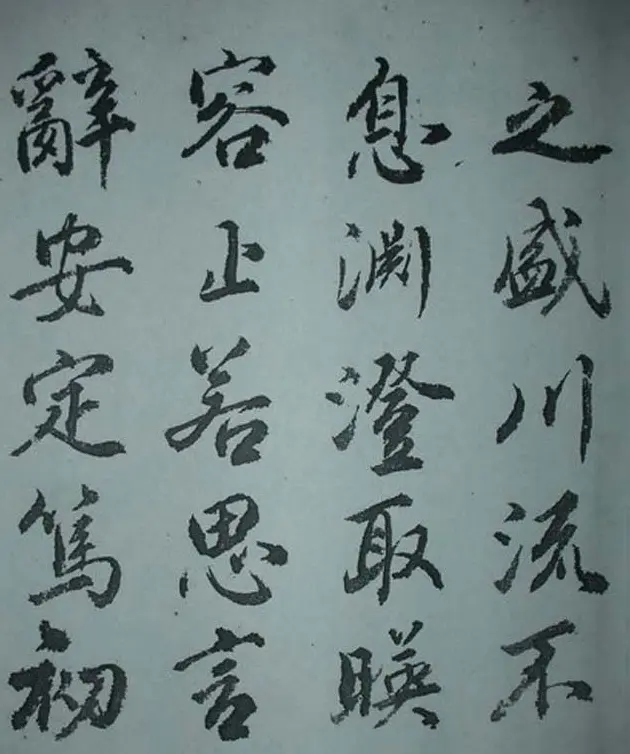 之盛川流不
息渊澄取暎
容止若思言
辭安定篤初